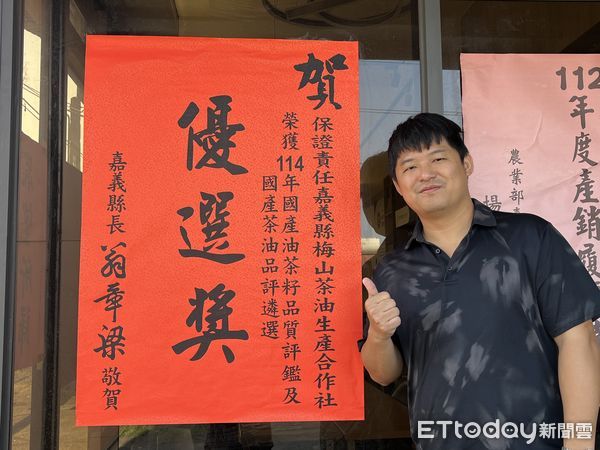 賀
保證責任嘉義縣梅山茶油生產合作社
榮獲114年國產油茶籽品質評鑑及
國產茶油品評遴選
優選獎
嘉義縣長 翁章梁 敬賀
112年度產銷履
農業部
場
ETtoday新聞雲